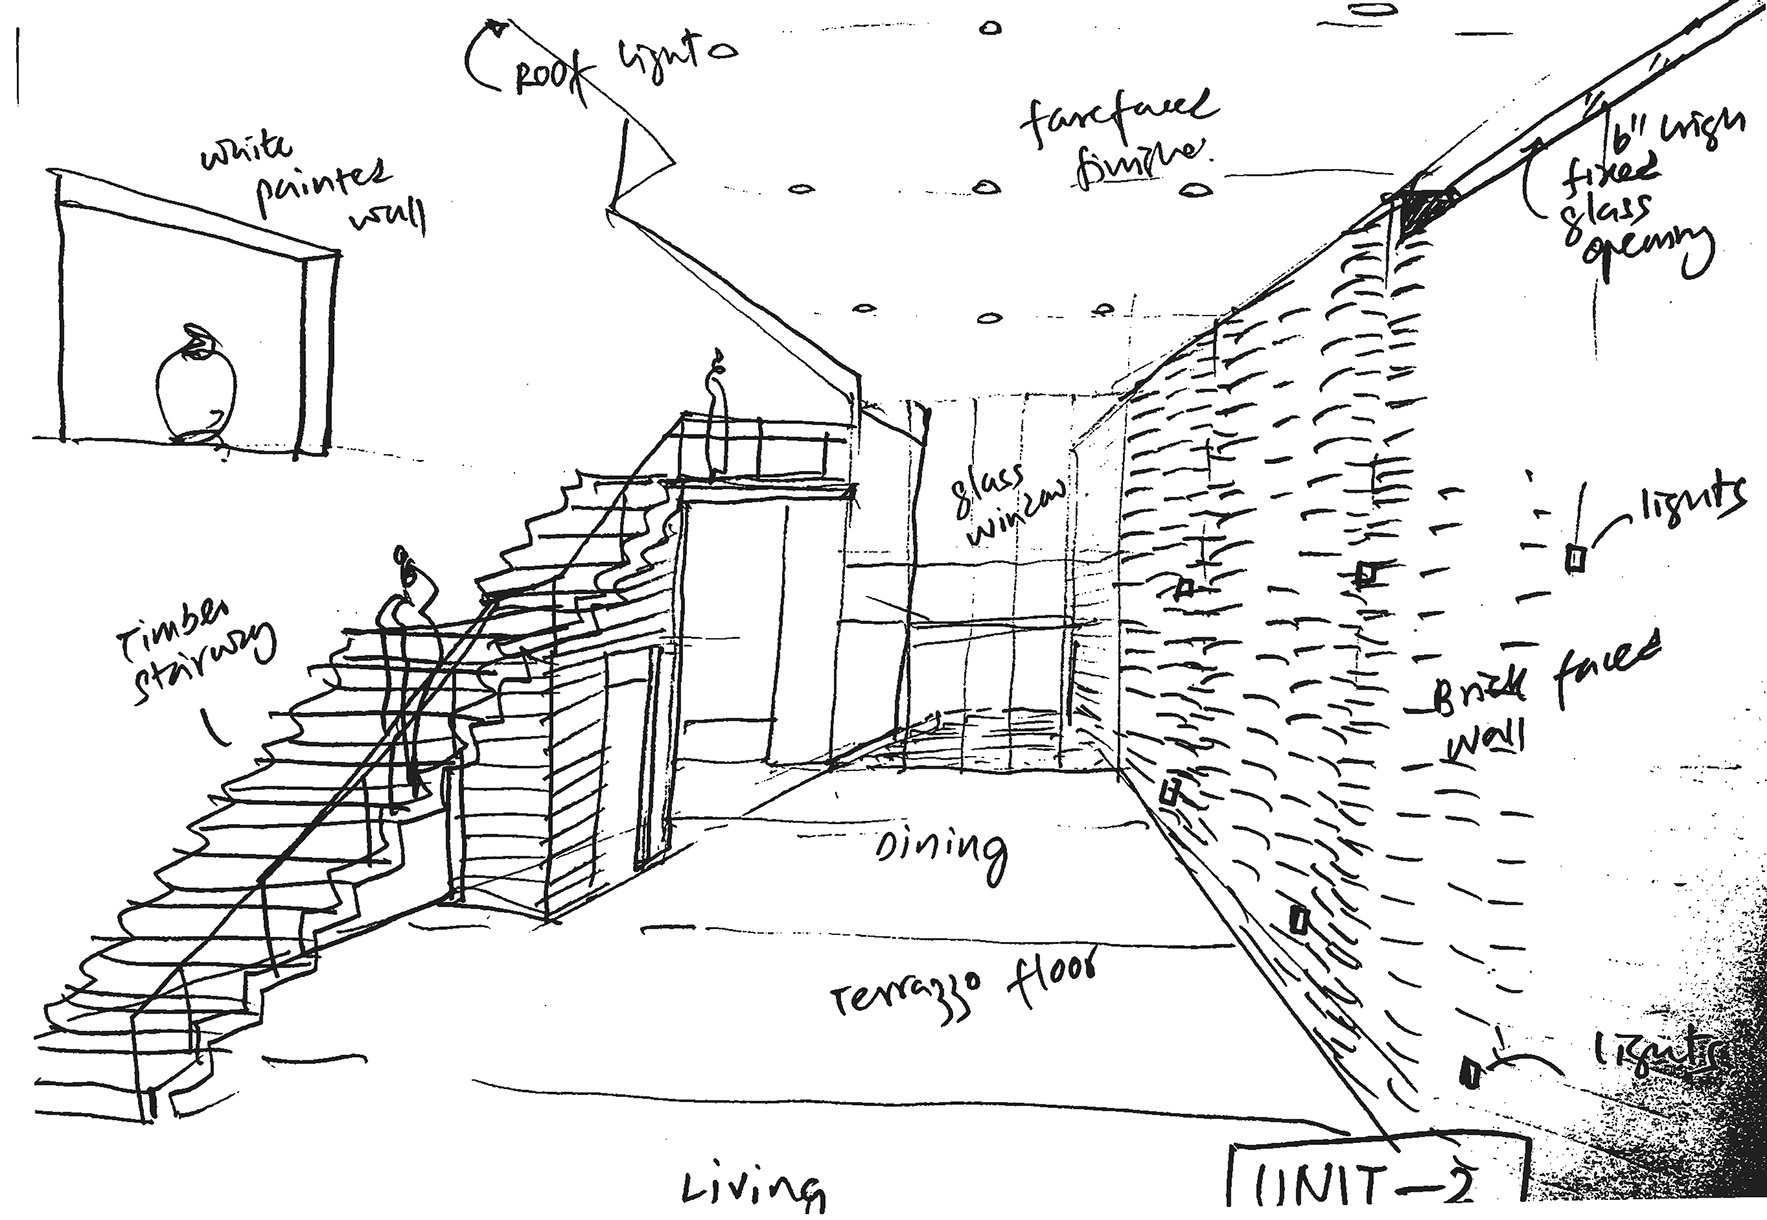 Roof light
farefaced
finishe.
6" high
fixed
glass
opening
white
painted
wall
glass
window
lights
Timber
stairway
Brick faced
wall
Dining
Terrazzo floor
lights
Living
UNIT-2